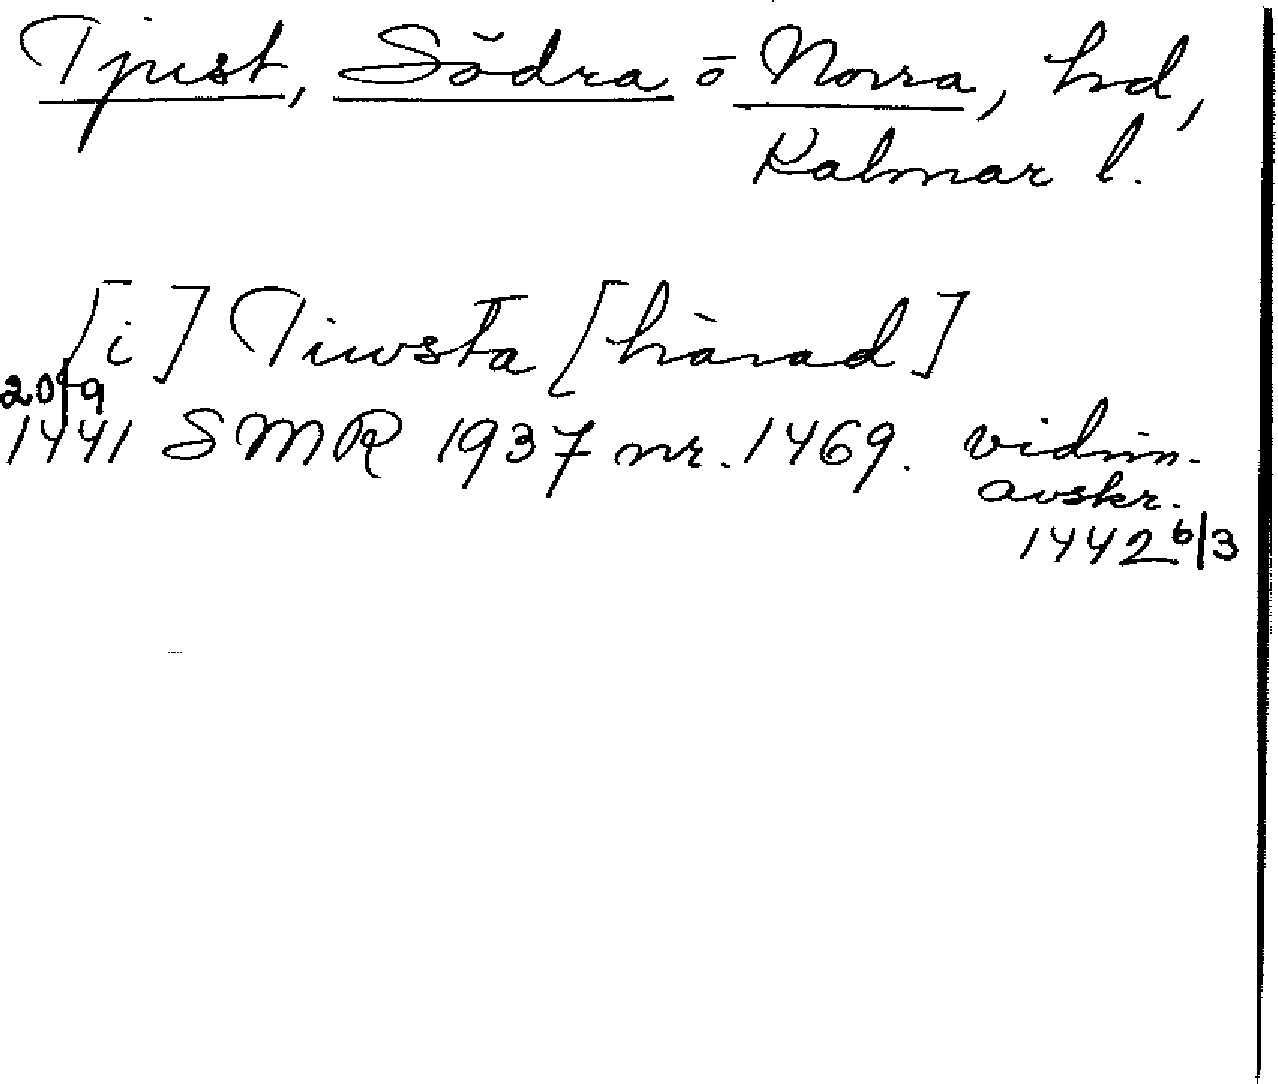 Tjust, Södra o Norra, hd,
Kalmar l.
[i] Tiwsta [härad]
20/9
1441 SMR 1937 nr. 1469. vidim.
avskr.
1442 6/3